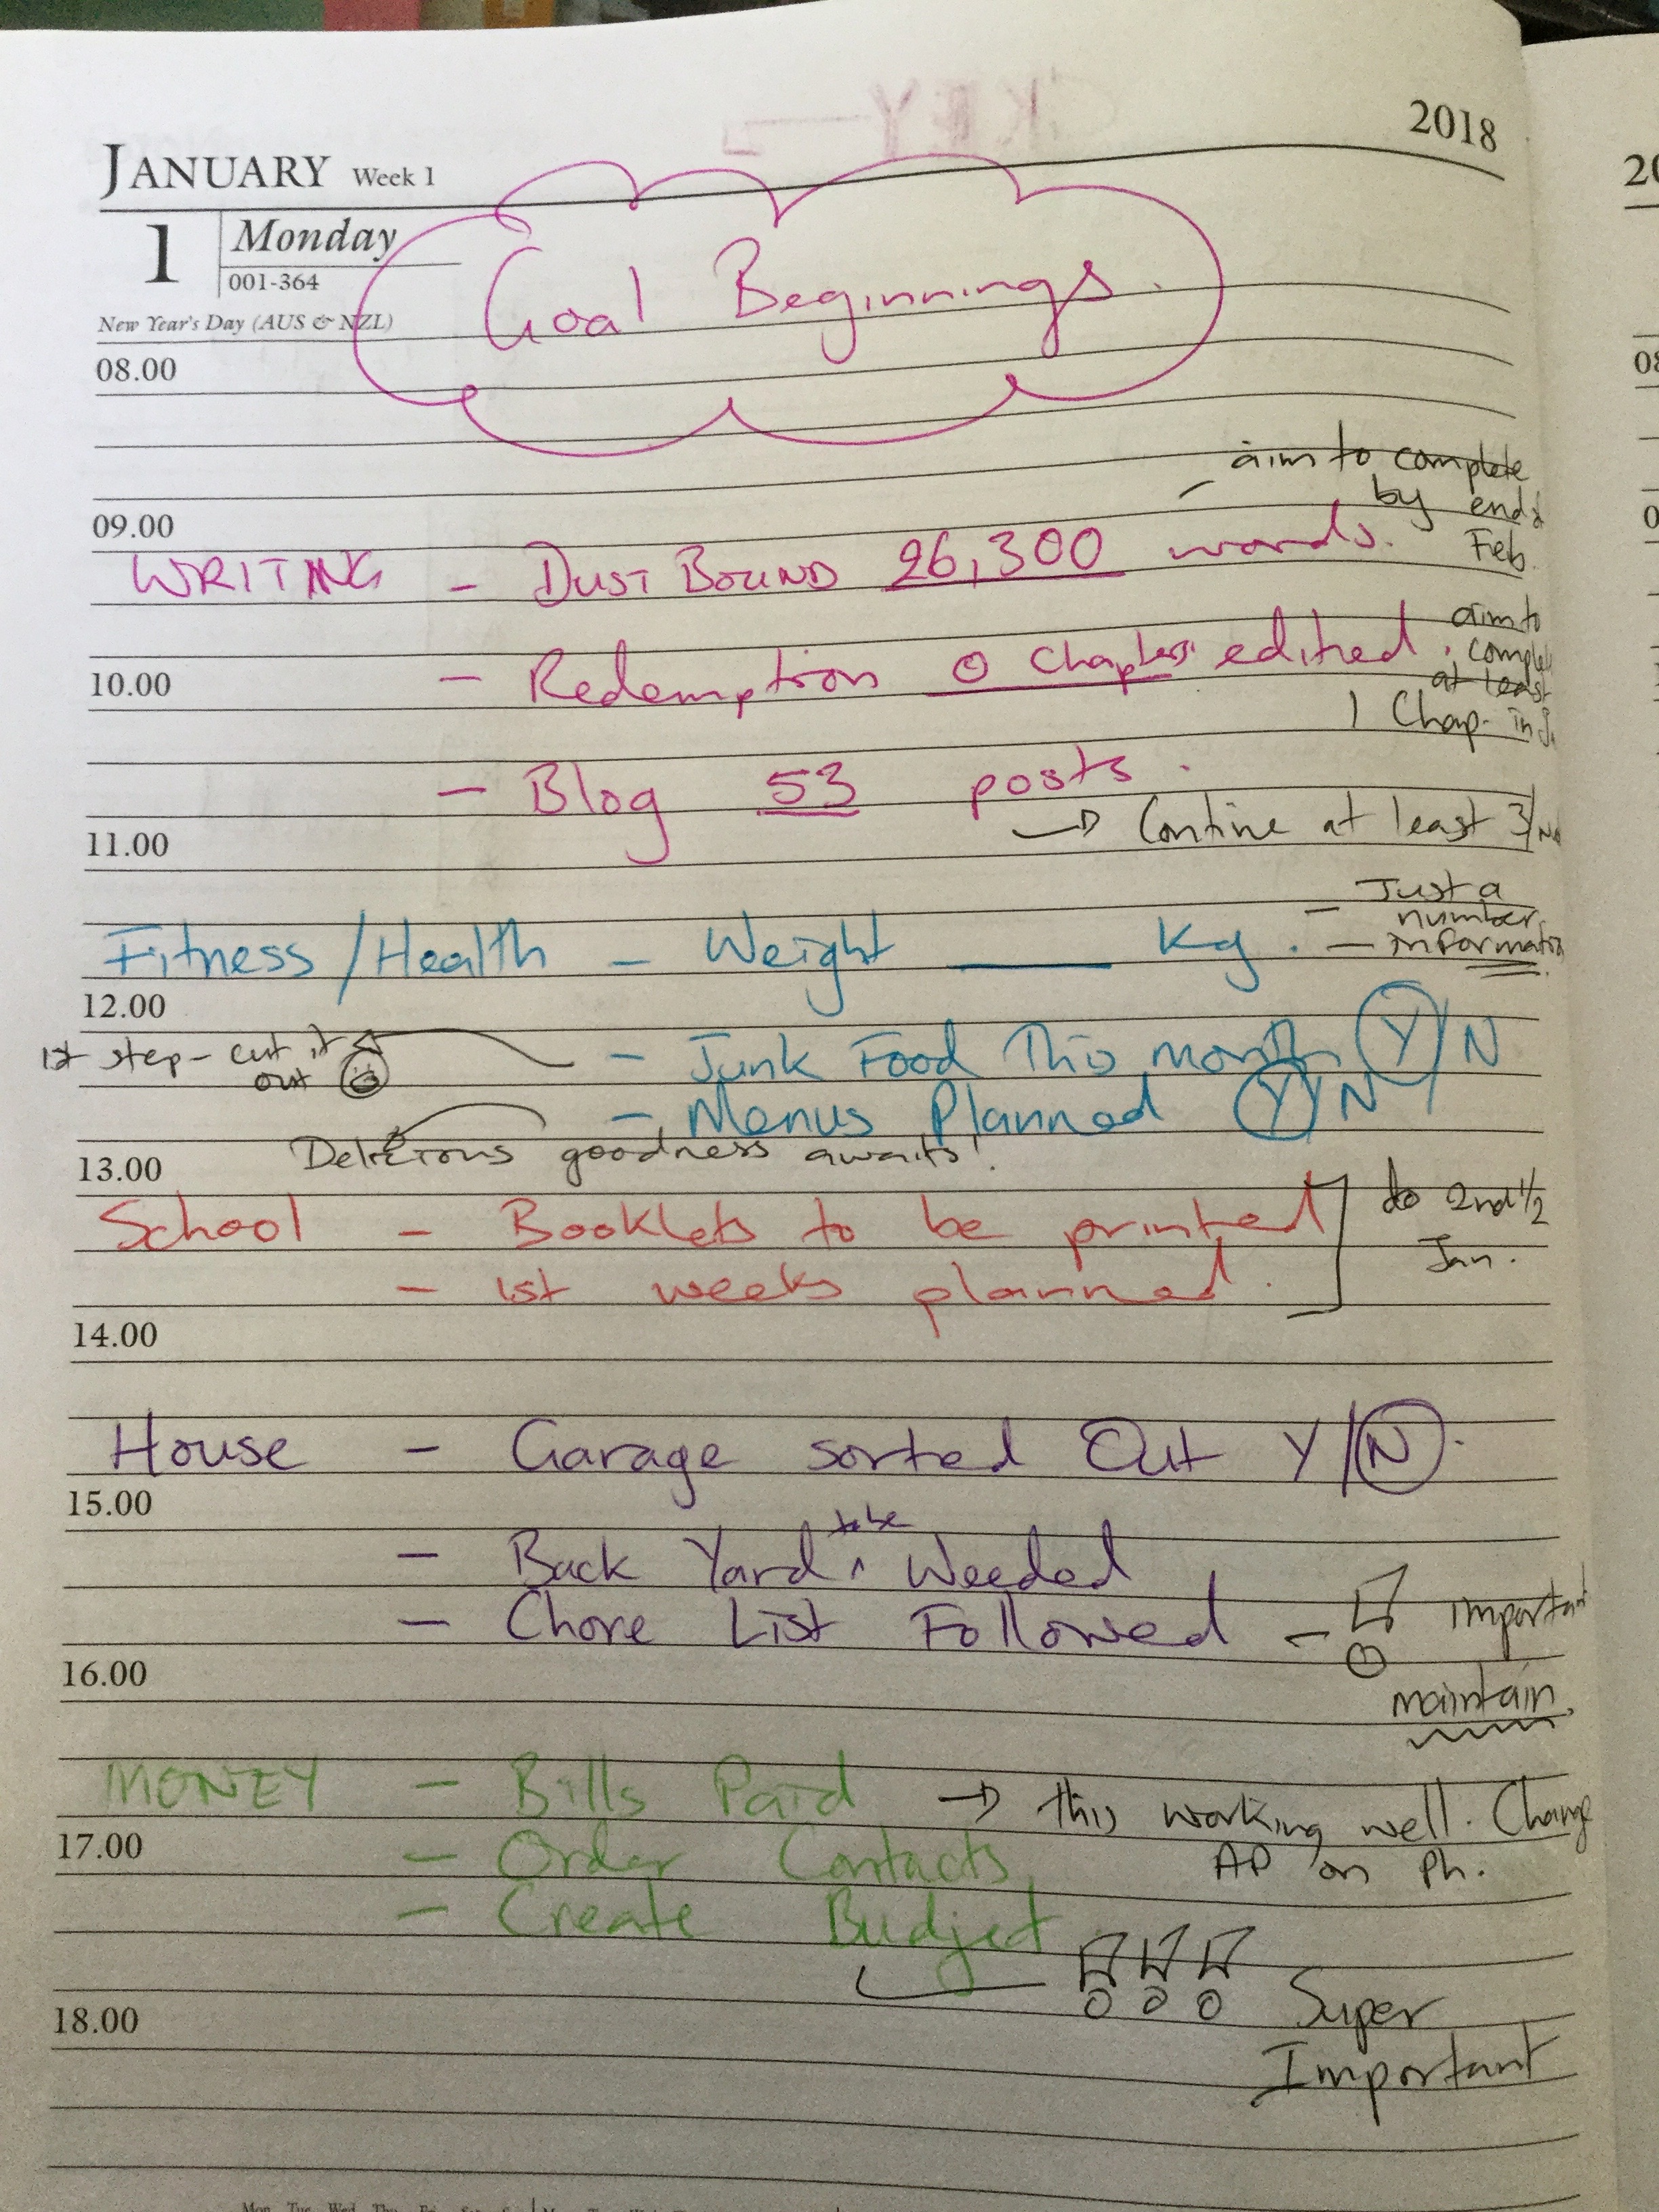 2018
JANUARY Week 1
1 Monday
001-364
New Year's Day (AUS & NZL)
Goal Beginnings.
08.00
aim to complete
by end of
Feb.
09.00
WRITING - DUST BOUND 26,300 words.
aim to
complete
at least
1 Chap. in J
10.00
- Redemption 0 Chapters edited.
- Blog 53 posts.
→ Contine at least 3/
11.00
Just a
number
- information
Fitness/Health - Weight ____ Kg.
12.00
1st step - cut it
out
- Junk Food This month Y/N
- Menus Planned Y/N
Delicious goodness awaits!
13.00
School - Booklets to be printed
- 1st weeks planned.
do 2nd 1/2
Jan.
14.00
House - Garage sorted Out Y/N.
15.00
- Back Yard to be Weeded
- Chore List Followed - ! important
maintain.
16.00
MONEY - Bills Paid → this working well. Change
AP on Ph.
17.00
- Order Contacts
- Create Budjet
!!! Super
Important
18.00
Mon Tue Wed Thu Fri
20
08